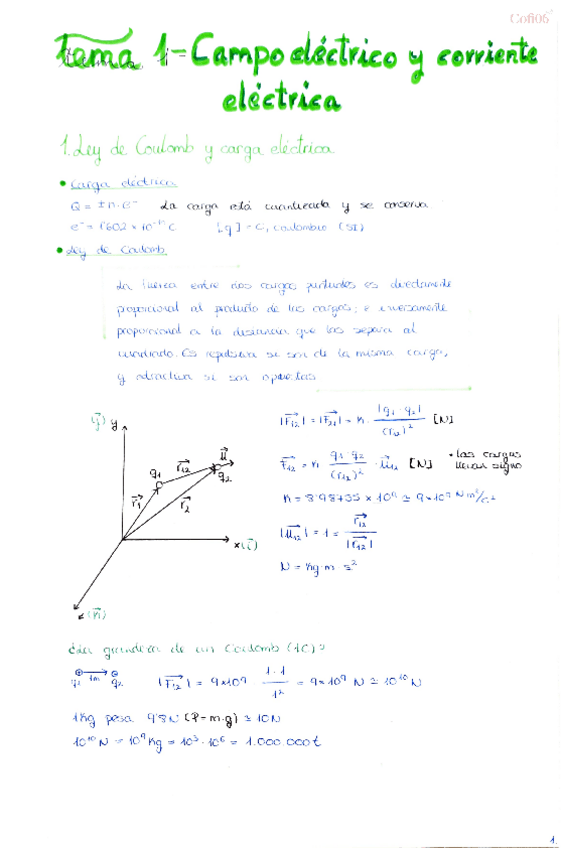 Cofi06
Tema 1-Campo eléctrico y corriente
eléctrica
1. Ley de Coulomb y carga eléctrica
• Carga eléctrica
Q = ±n·e⁻ La carga está cuantizada y se conserva
e⁻ = 1'602 × 10⁻¹⁹ C [q] = C, coulombio (SI)
• Ley de Coulomb
La fuerza entre dos cargas puntuales es directamente
proporcional al producto de las cargas; e inversamente
proporcional a la distancia que las separa al
cuadrado. Es repulsiva si son de la misma carga,
y atractiva si son opuestas
(j) y
q₁ r₁₂ u q₂
r₁ r₂
x (i)
z (k)
|F₁₂| = |F₂₁| = K · |q₁ · q₂| / (r₁₂)² [N]
F₁₂ = K · q₁ · q₂ / (r₁₂)² · u₁₂ [N] • las cargas
llevan signo
K = 8'98755 × 10⁹ ≃ 9×10⁹ N m²/c²
|u₁₂| = 1 = r₁₂ / |r₁₂|
N = kg · m · s²
¿La grandeza de un Coulomb (1C)?
q₁ 1m q₂ |F₁₂| = 9×10⁹ · 1 · 1 / 1² = 9×10⁹ N ≃ 10¹⁰ N
1Kg pesa 9'8N (P = m·g) ≃ 10N
10¹⁰ N = 10⁹ Kg = 10³ · 10⁶ = 1.000.000t
1.